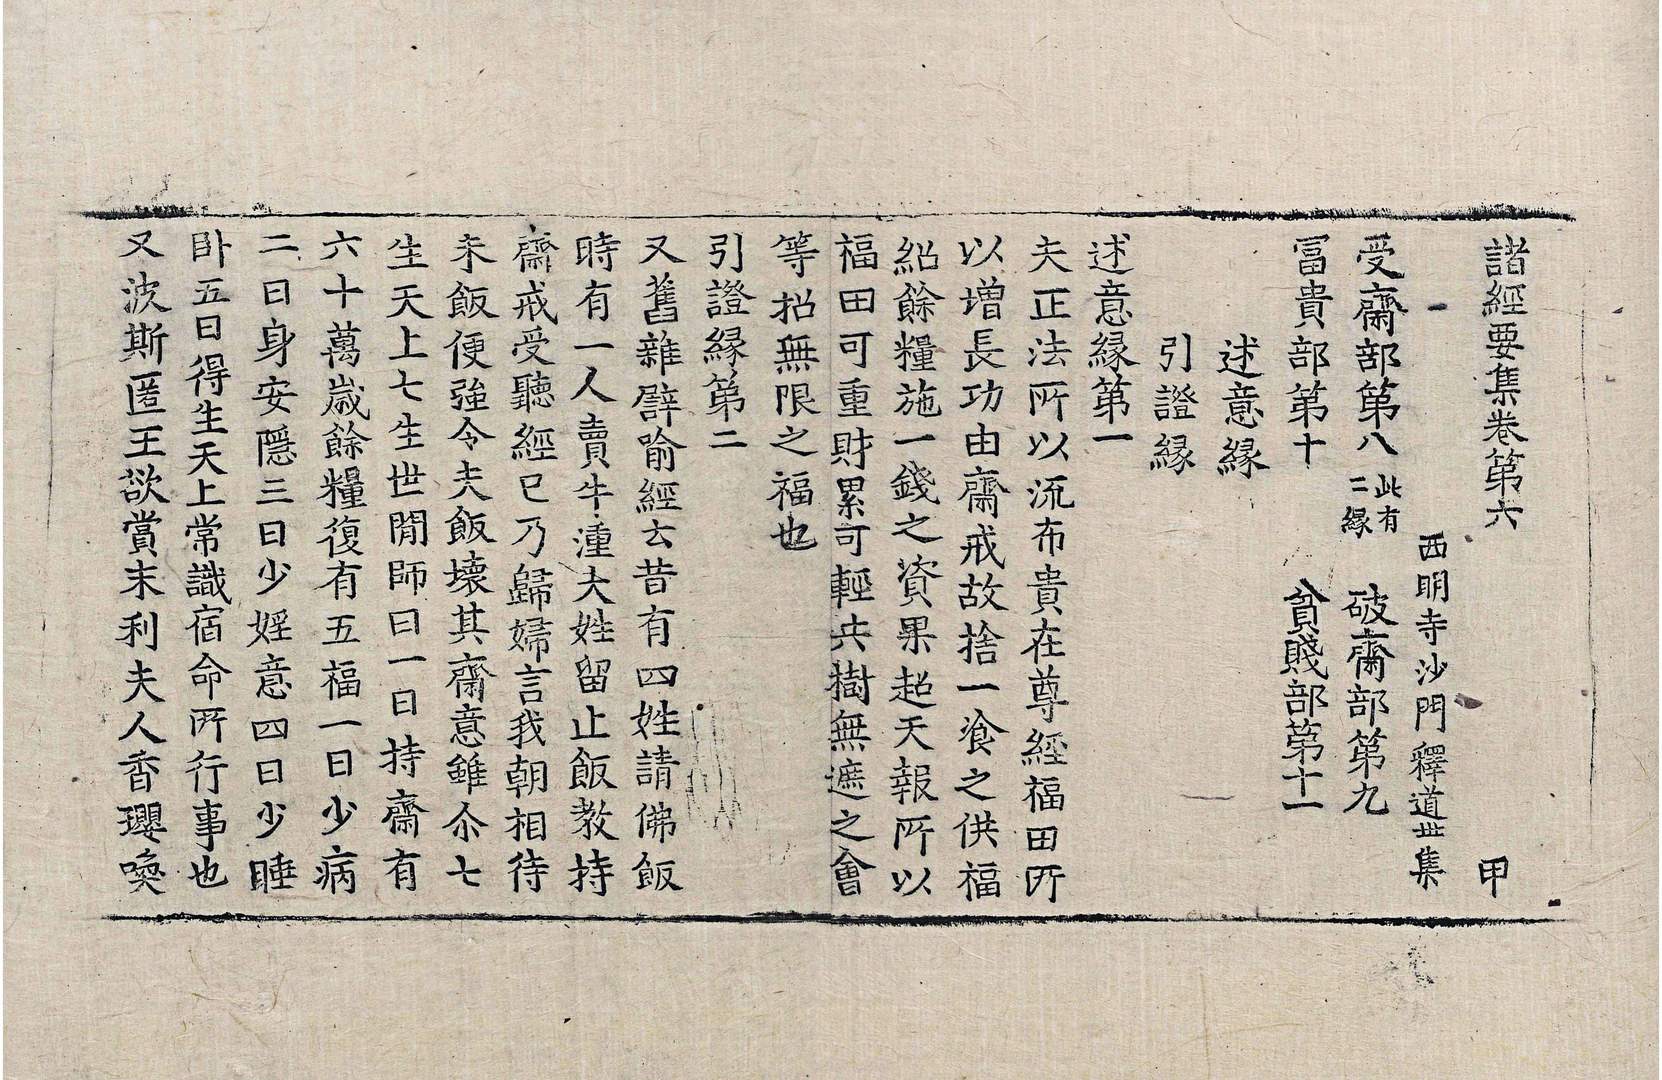 諸經要集卷第六　甲
西明寺沙門釋道世集
受齋部第八此有二緣　破齋部第九
冨貴部第十　貧賤部第十一
述意緣
引證緣
述意緣第一
夫正法所以流布貴在尊經福田所
以增長功由齋戒故捨一飡之供福
紹餘糧施一錢之資果超天報所以
福田可重財累可輕共樹無遮之會
等招無限之福也
引證緣第二
又舊雜譬喻經云昔有四姓請佛飯
時有一人賣牛湩大姓留止飯教持
齋戒受聽經已乃歸婦言我朝相待
未飯便強令夫飯壞其齋意雖尒七
生天上七生世間師曰一日持齋有
六十萬歲餘糧復有五福一曰少病
二曰身安隱三曰少婬意四曰少睡
卧五曰得生天上常識宿命所行事也
又波斯匿王欲賞末利夫人香瓔喚